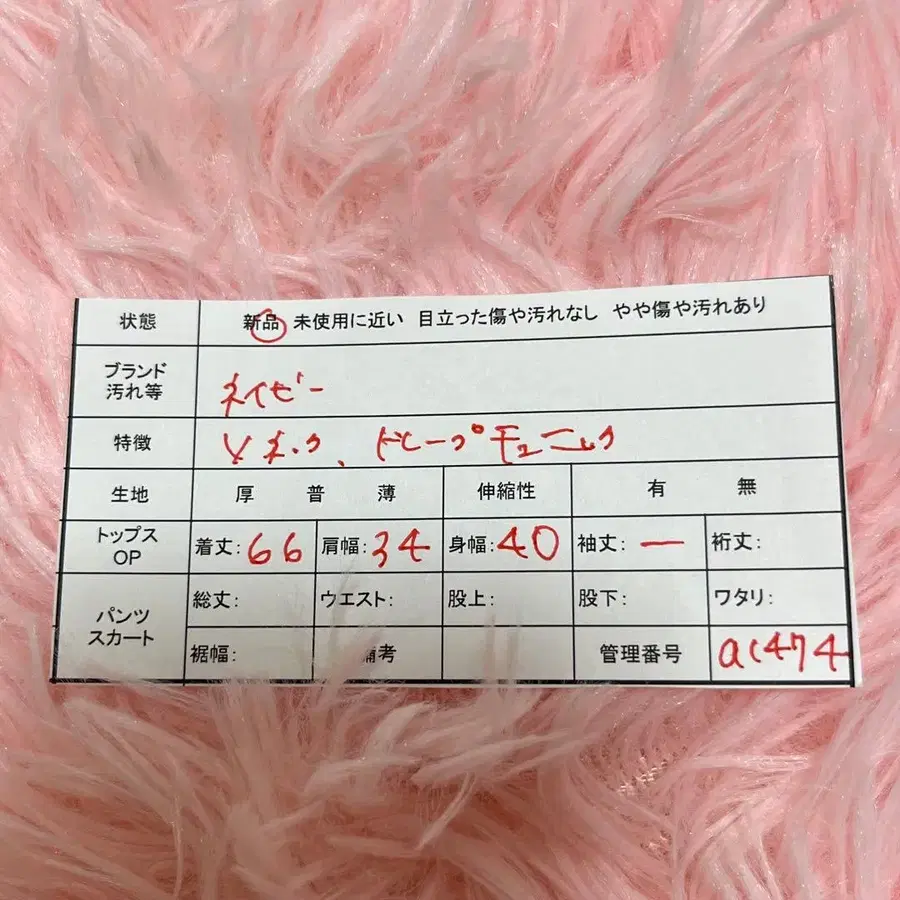 状態 新品 未使用に近い 目立った傷や汚れなし やや傷や汚れあり
ブランド
汚れ等 ネイビー
特徴 Vネック、ドレープチュニック
生地 厚 普 薄 伸縮性 有 無
トップス
OP 着丈:66 肩幅:34 身幅:40 袖丈:ー 裄丈:
パンツ
スカート 総丈: ウエスト: 股上: 股下: ワタリ:
裾幅: 備考 管理番号 ac474